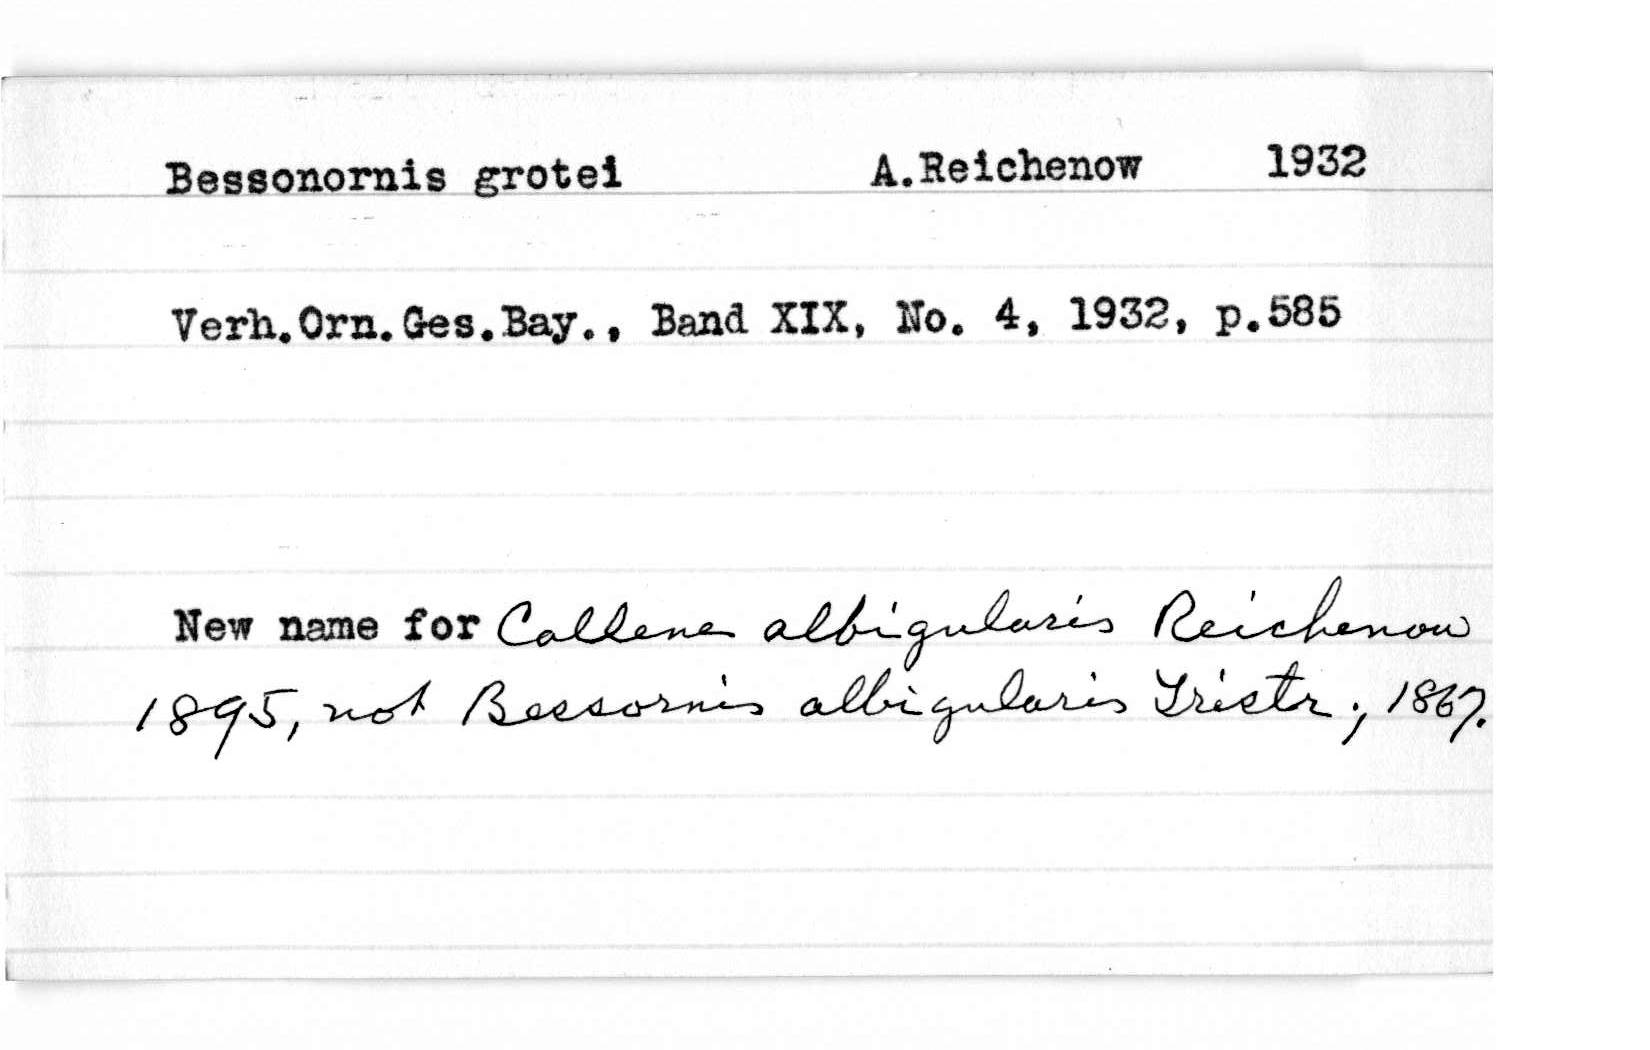 Bessonornis grotei A.Reichenow 1932
Verh.Orn.Ges.Bay., Band XIX, No. 4, 1932, p.585
New name for Callene albigularis Reichenow
1895, not Bessornis albigularis Tristr., 1867.